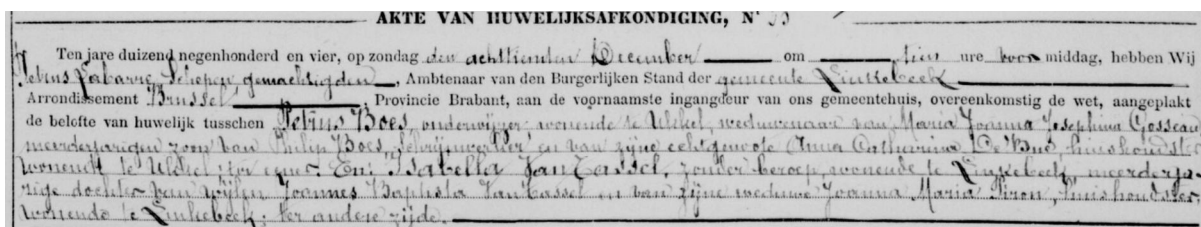 AKTE VAN HUWELIJKSAFKONDIGING, Nr 33
Ten jare duizend negenhonderd en vier, op zondag den achttienden December om tien ure voor middag, hebben Wij
Petrus Labarre, Schepen gemachtigden, Ambtenaar van den Burgerlijken Stand der gemeente Linkebeek
Arrondissement Brussel, Provincie Brabant, aan de voornaamste ingangdeur van ons gemeentehuis, overeenkomstig de wet, aangeplakt
de belofte van huwelijk tusschen Petrus Boes, onderwijzer, wonende te Ukkel, weduwenaar van Maria Joanna Josephina Gosseau
meerderjarigen zoon van Philip Boes, schrijnwerker, en van zijne echtgenote Anna Catharina De Bue, huishoudster
wonende te Ukkel, ter eene. En: Isabella Van Cassel, zonder beroep, wonende te Linkebeek, meerderja-
rige dochter van wijlen Joannes Baptista Van Cassel en van zijne weduwe Joanna Maria Piron, huishoudster,
wonende te Linkebeek, ter andere zijde.